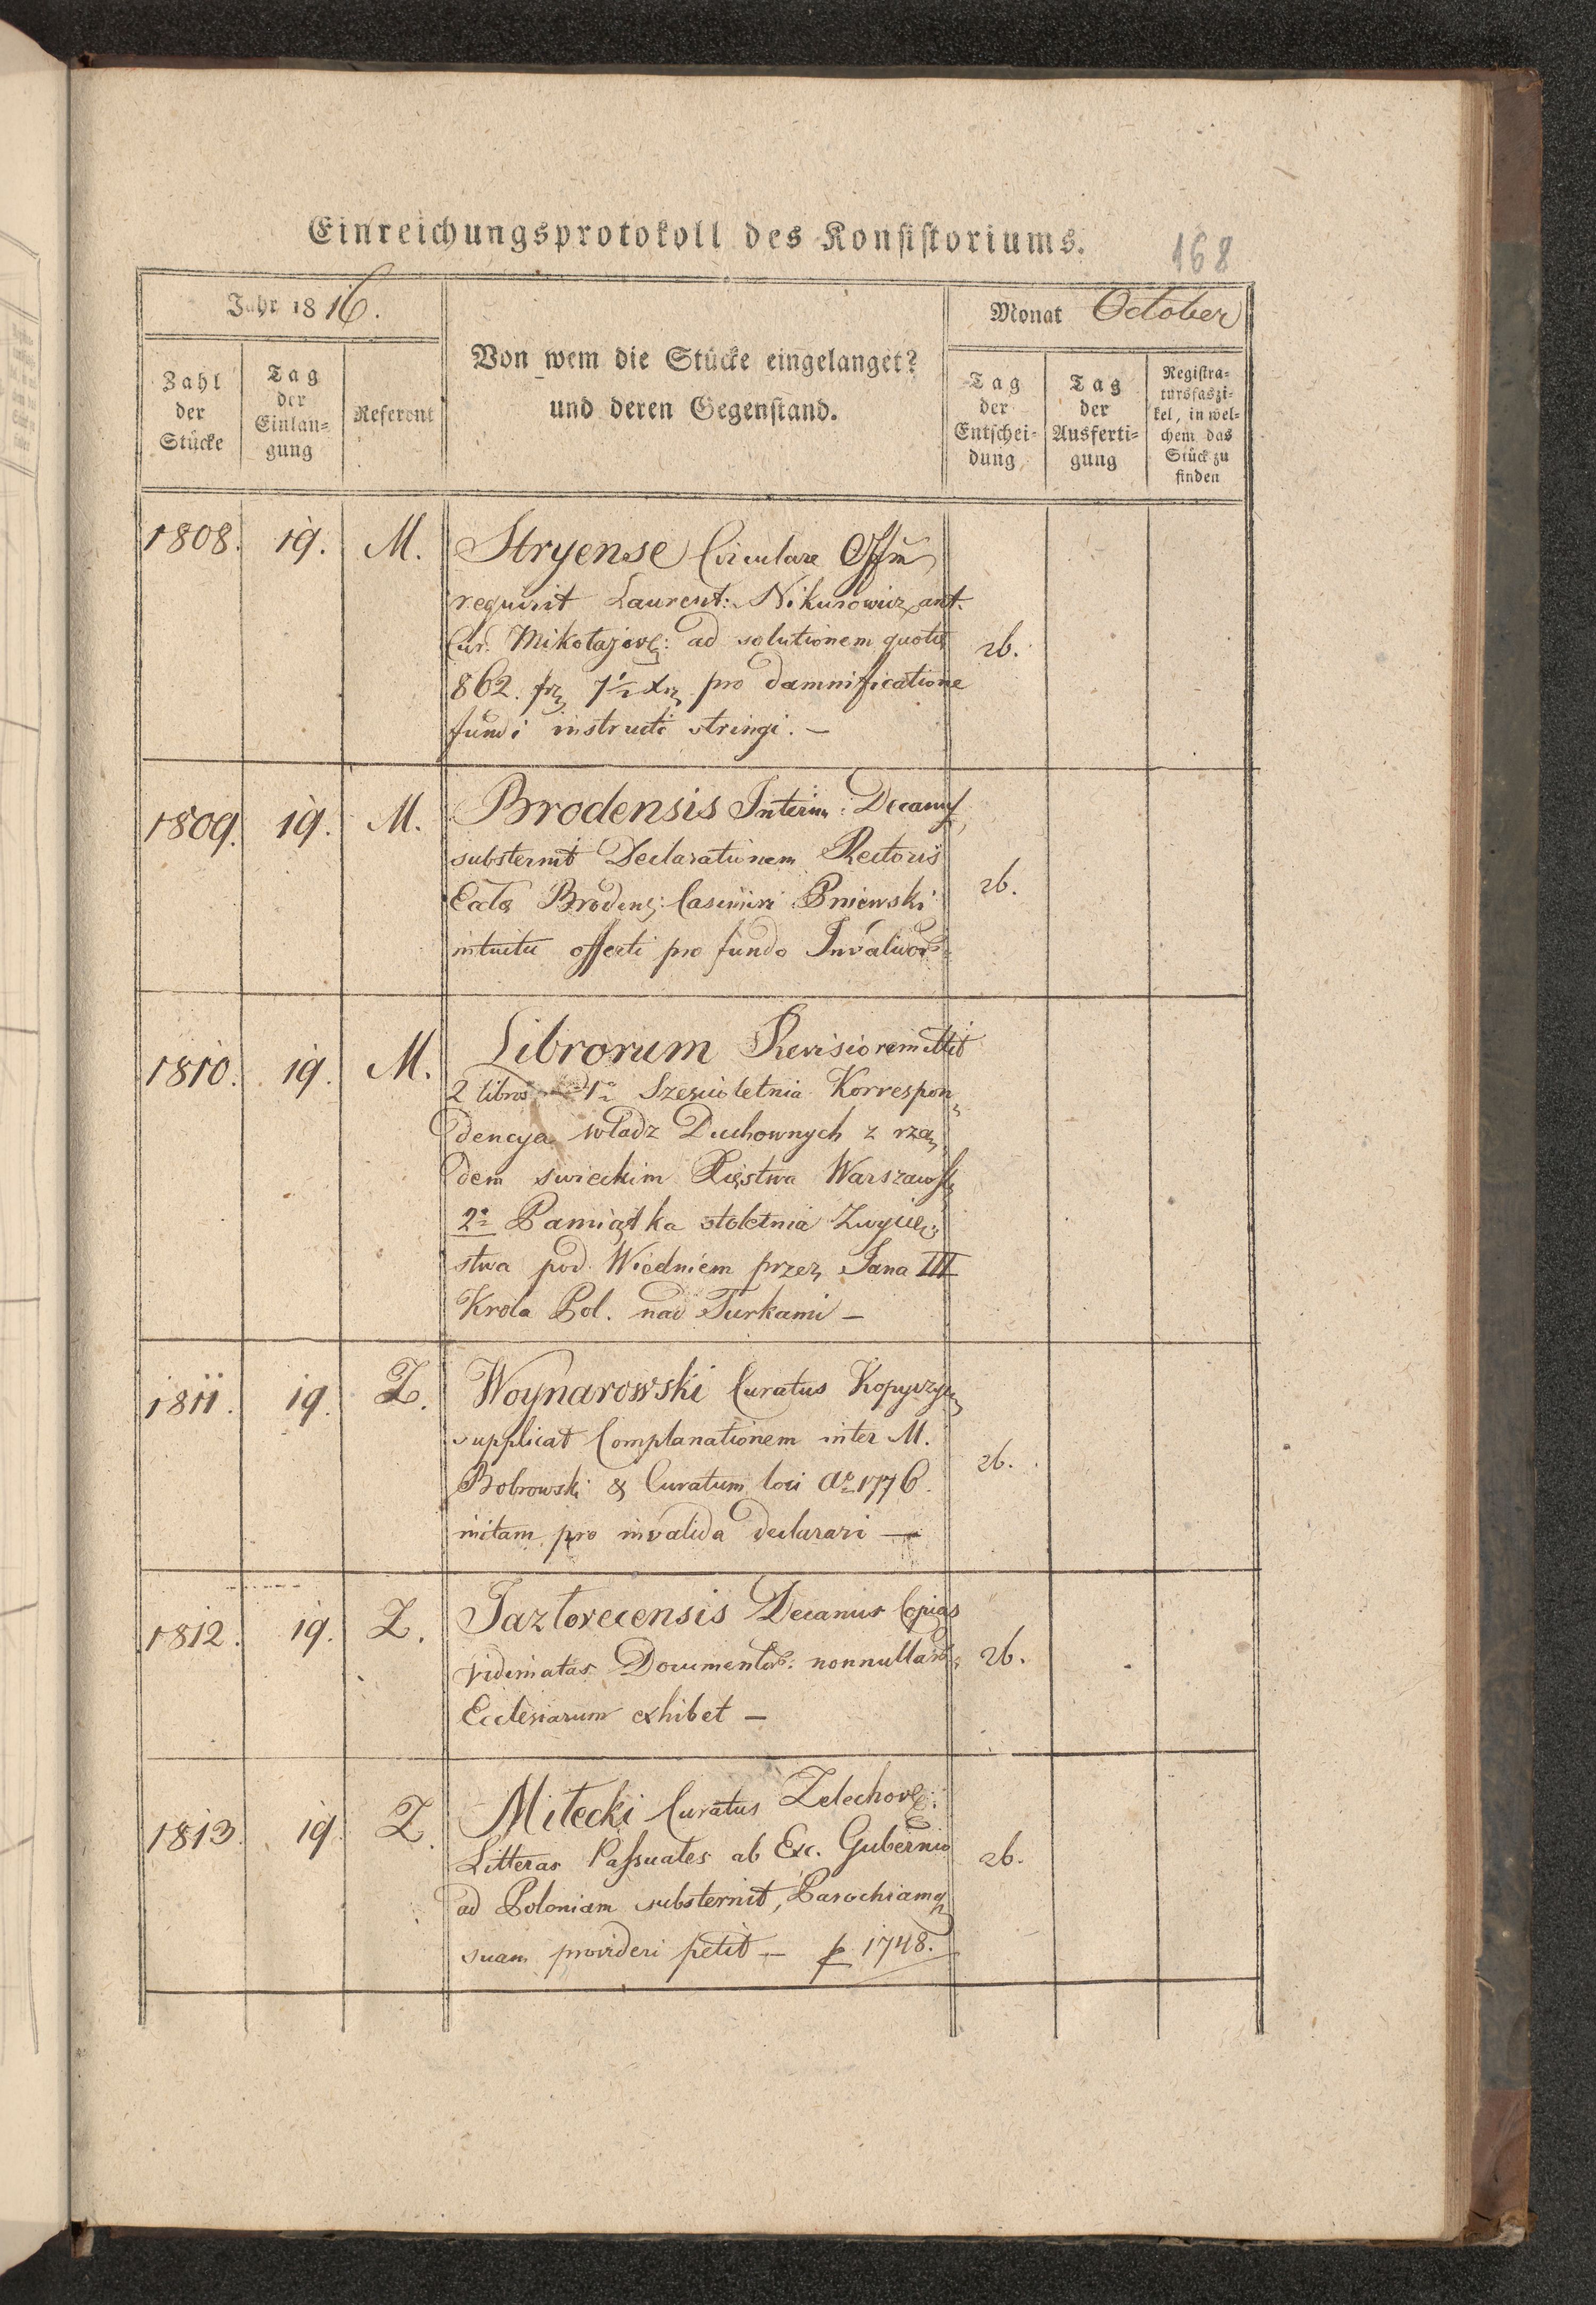 Einreichungsprotokoll des Konsistoriums.
168
Jahr 1816.
Monat October
Zahl der Stücke
Tag der Einlan=gung
Referent
Von wem die Stücke eingelanget?
und deren Gegenstand.
Tag der Entschei=dung
Tag der Ausferti=gung
Registra=tursfaszi=kel, in wel=chem das Stück zu finden
1808. 19. M. Stryense Circulare Offm
requirit Laurent: Nikurowicz ant.
Cur. Mikołajov: ad solutionem quotæ 26.
862. fr 7½ xr pro damnificatione
fundi instructi stringi. —
1809. 19. M. Brodensis Interim: Decanus
substernit Declarationem Rectoris
Eccl Brodens: Casimiri Pniewski 26.
intuitu offerti pro fundo Invalidor:
1810. 19. M. Librorum Revisio remittit
2 libros 1o Szescioletnia Korrespon=
dencya władz Duchownych z rzą=
dem swieckim Xięstwa Warszaws
2o Pamiątka stoletnia Zwycię=
stwa pod Wiedniem przez Jana III
Krola Pol. nad Turkami —
1811. 19. Z. Woynarowski Curatus Kopyczyn
supplicat Complanationem inter M.
Bobrowski & Curatum loci Ao 1776. 26.
initam pro invalida declarari —
1812. 19. Z. Jazlovecensis Decanus Copias
vidimatas Documentor: nonnullar: 26.
Ecclesiarum exhibet —
1813. 19. Z. Milecki Curatus Zelechov:
Litteras Passuales ab Exc. Gubernio 26.
ad Poloniam substernit, Parochiamq
suam provideri petit — p 1748.